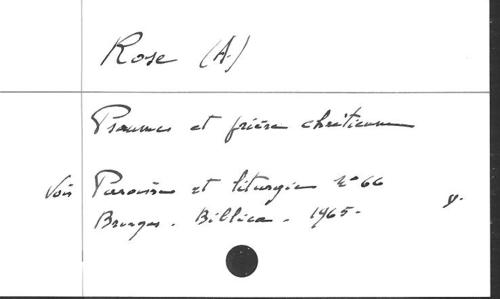 Rose (A.)
Psaumes et prière chrétienne
Voir Paroisse et liturgie N° 66
Bruges. Biblica. 1965.